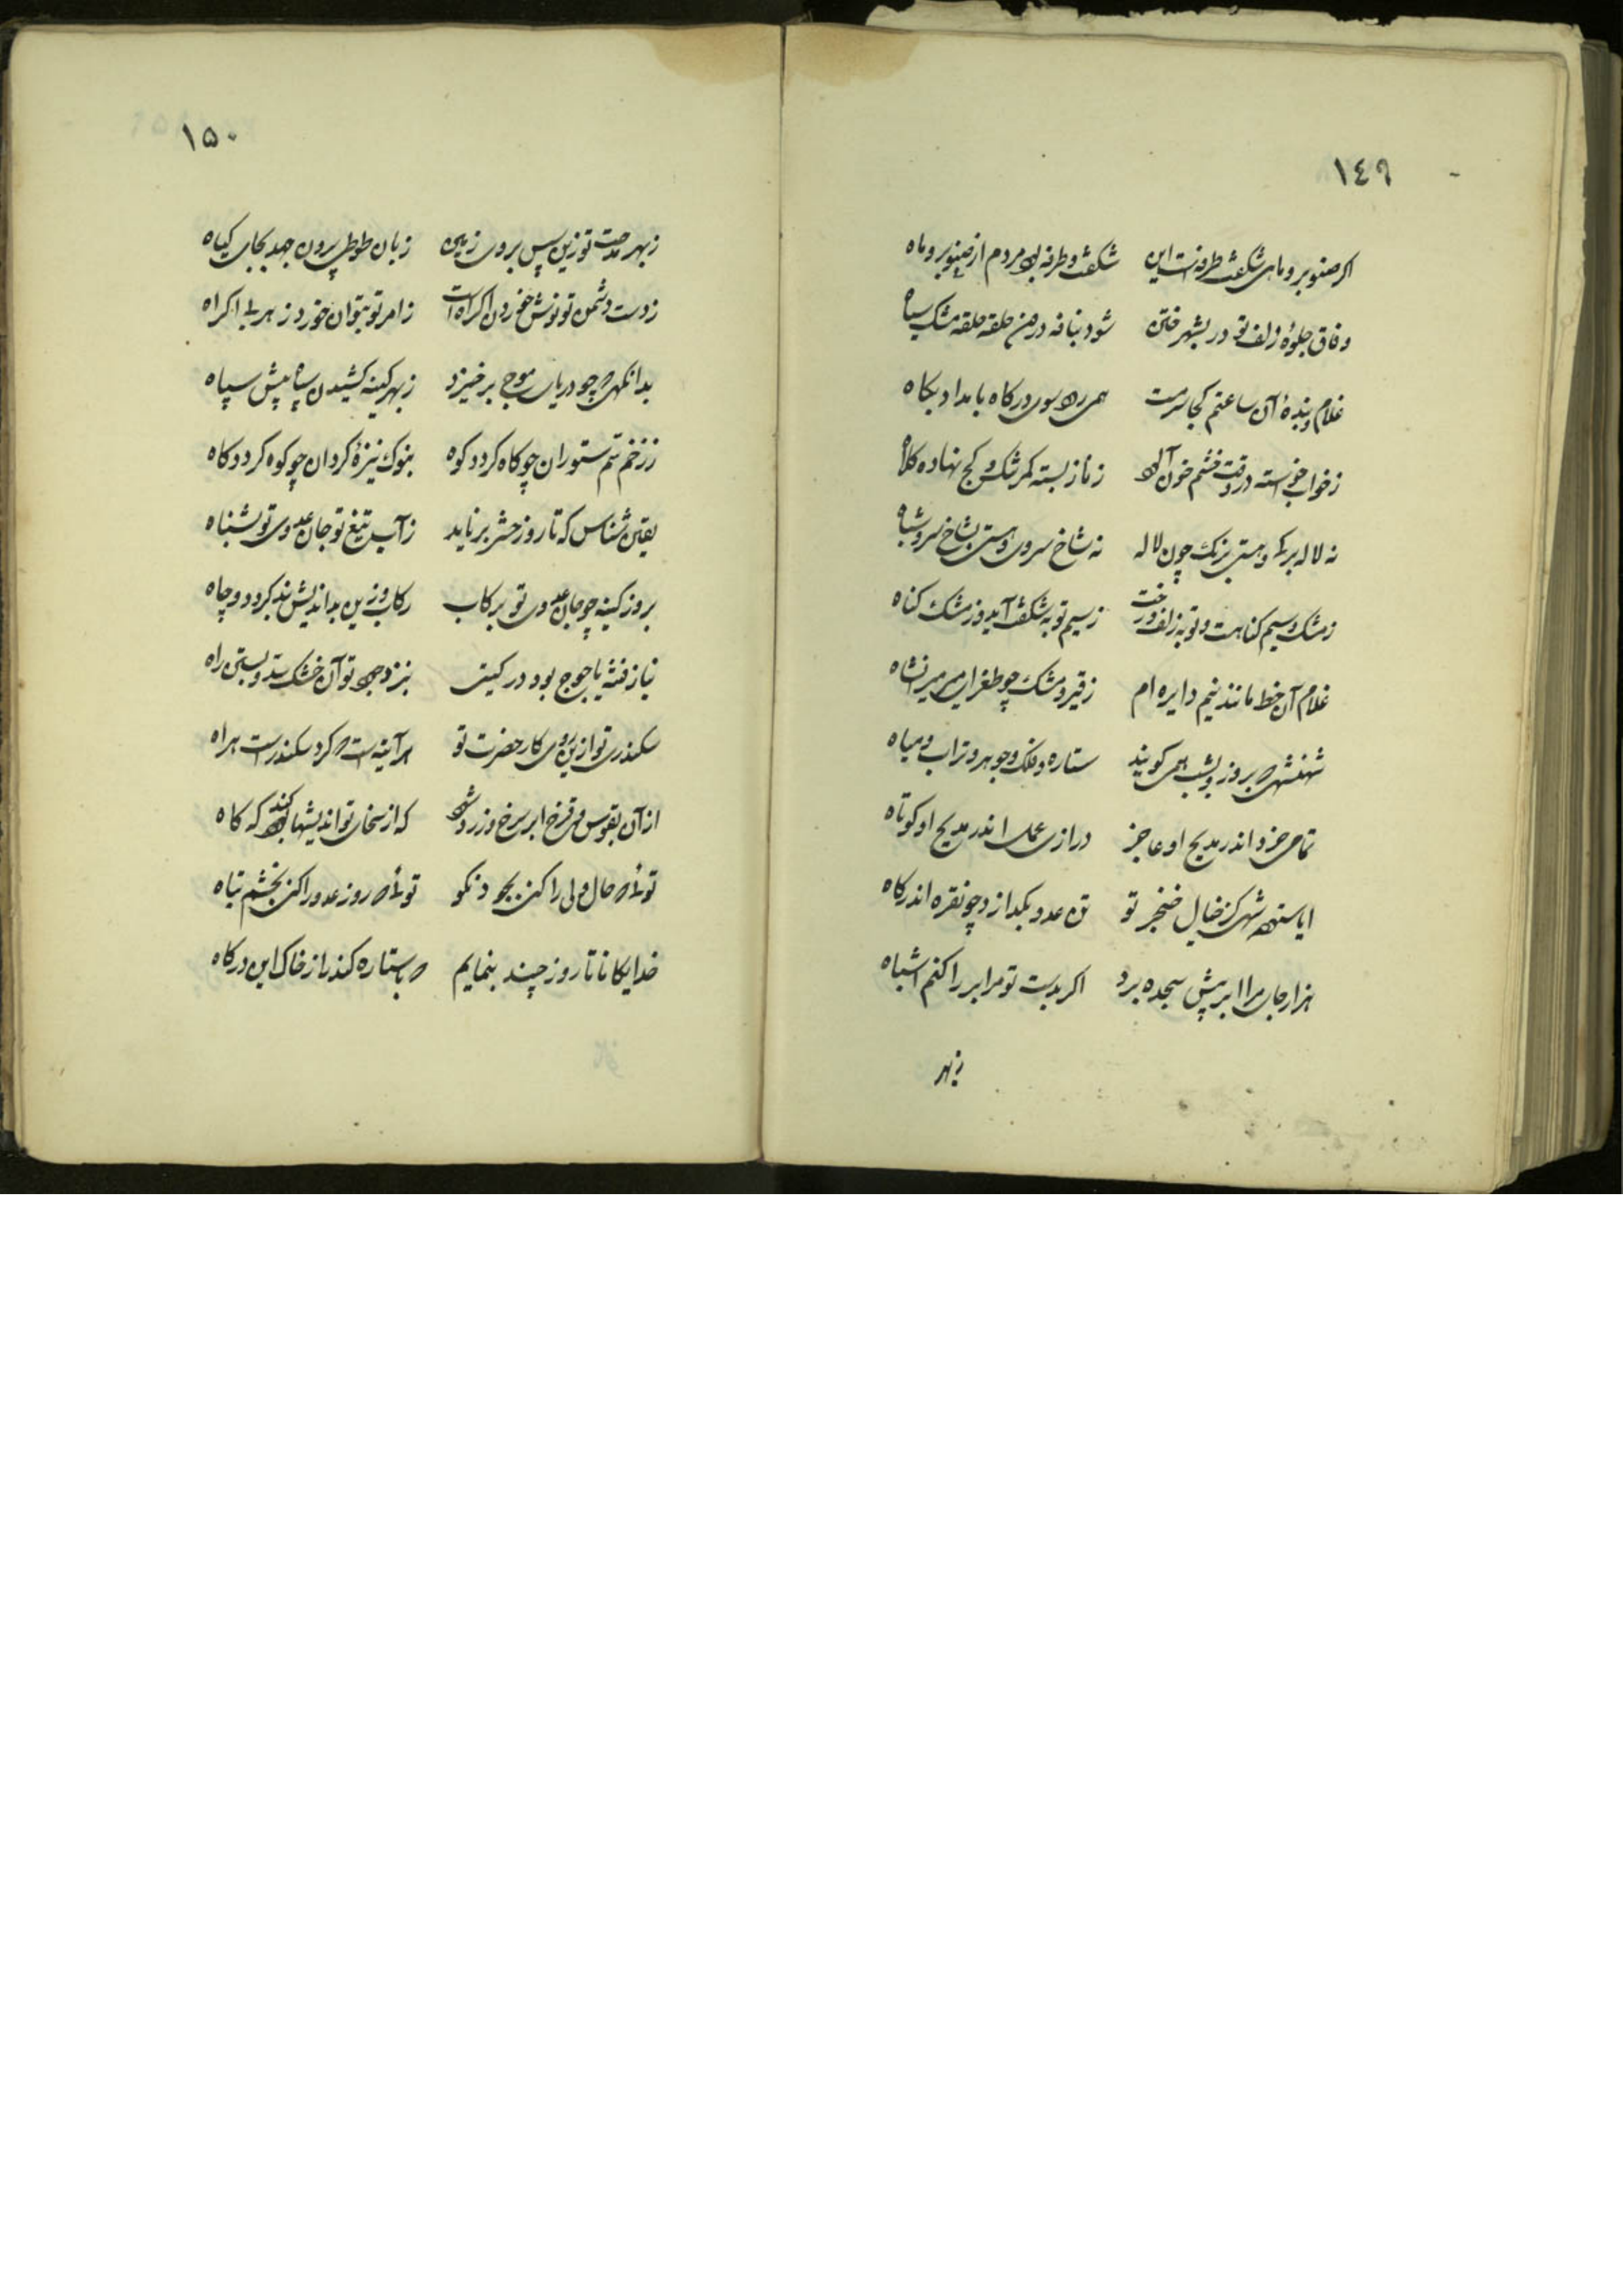 ١٤٩
اگر صنوبر و ماهی شگفت طرفه است این شگفت و طرفه بود مردم از صنوبر و ماه
وفاق جلوهٔ زلف تو در بشهر ختن شود بنافه درمن حلقه حلقه مشک سیاه
غلام و بندهٔ آن ساعتم کجا سرمست همی روی سوی درگاه بامداد پگاه
ز خواب خواسته در وقت خشم خون آلود ز ناز بسته کمر تنگ و کج نهاده کلاه
نه لاله برگ و هستی برنگ چون لاله نه شاخ سروی و هستی بشاخ سرو شباه
ز مشک و سیم گناهست و توبه زلف و رخت ز سیم توبه شگفت آید و ز مشک گناه
غلام آن خط مانند نیم دایره ام ز قیر و مشک چو طغرای میر میرانشاه
شهنشهی که بروز و بشب همی گویند ستاره و فلک و جوهر و تراب و میاه
تمامی خرد اندر مدیح او عاجز درازی عمل اندر مدیح او کوتاه
ایا ستوده شهی کز خیال خنجر تو تن عدو بگدازد چو نقره اندر گاه
هزار جان مرا ابر پیش سجده برد اگر بدست تو مر ابر را کنم اشباه
ز بهر
١٥٠
ز بهر مدحت تو زین سپس بروی زمین زبان طوطی بیرون جهد بجای گیاه
ز دست دشمن تو نوش خوردن اکراه است ز امر تو بتوان خورد زهر بی اکراه
بدانگهی که چو دریای موج برخیزد ز بهر کینه کشیدن سپاه پیش سپاه
ز زخم سم ستوران چو کاه گردد کوه بنوک نیزهٔ گردان چو کوه گردد کاه
یقین شناس که تا روز حشر برناید ز آب تیغ تو جان عدوی تو بشناه
بروز کینه چو جان عدوی تو بر کاب رکاب و زین بداندیش بند گردد و چاه
نیاز فتنه یاجوج بود در گیتی بنزد جود تو آن خشک سد و بستی راه
سکندری تو ازین روی کار حضرت تو هر آینه است که کرد سکندرست هراه
از آن بقوس قزح ابر سرخ و زرد شود که از سخای تو اندیشها کند گه گاه
توئی که حال ولی را کنی بجود نکو توئی که روز عدو را کنی بخشم تباه
خدایگانا تا روز چند بنمایم که با ستاره کند راز خاک این درگاه